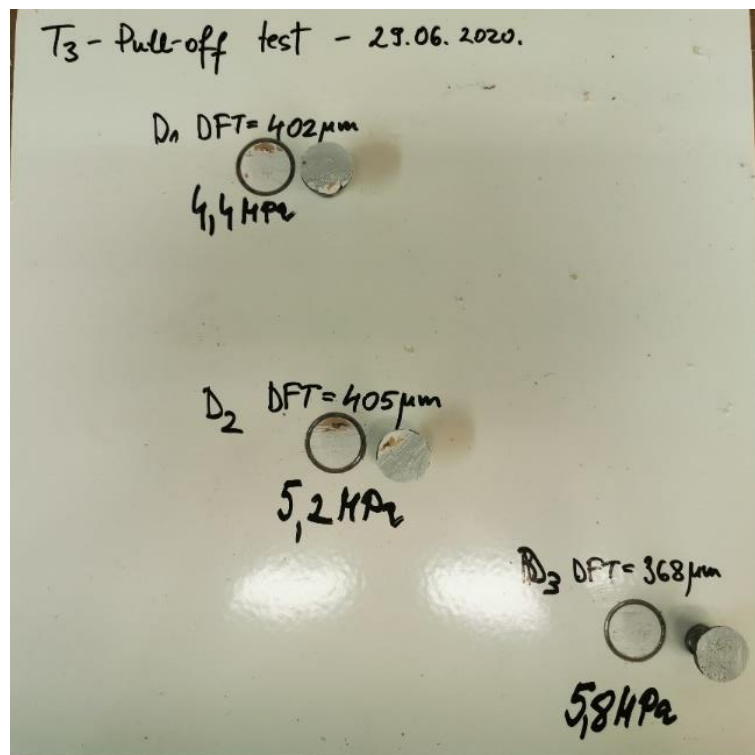 T3 - Pull-off test - 29.06.2020.
D1 DFT = 402 µm
4,4 MPa
D2 DFT = 405 µm
5,2 MPa
D3 DFT = 368 µm
5,8 MPa